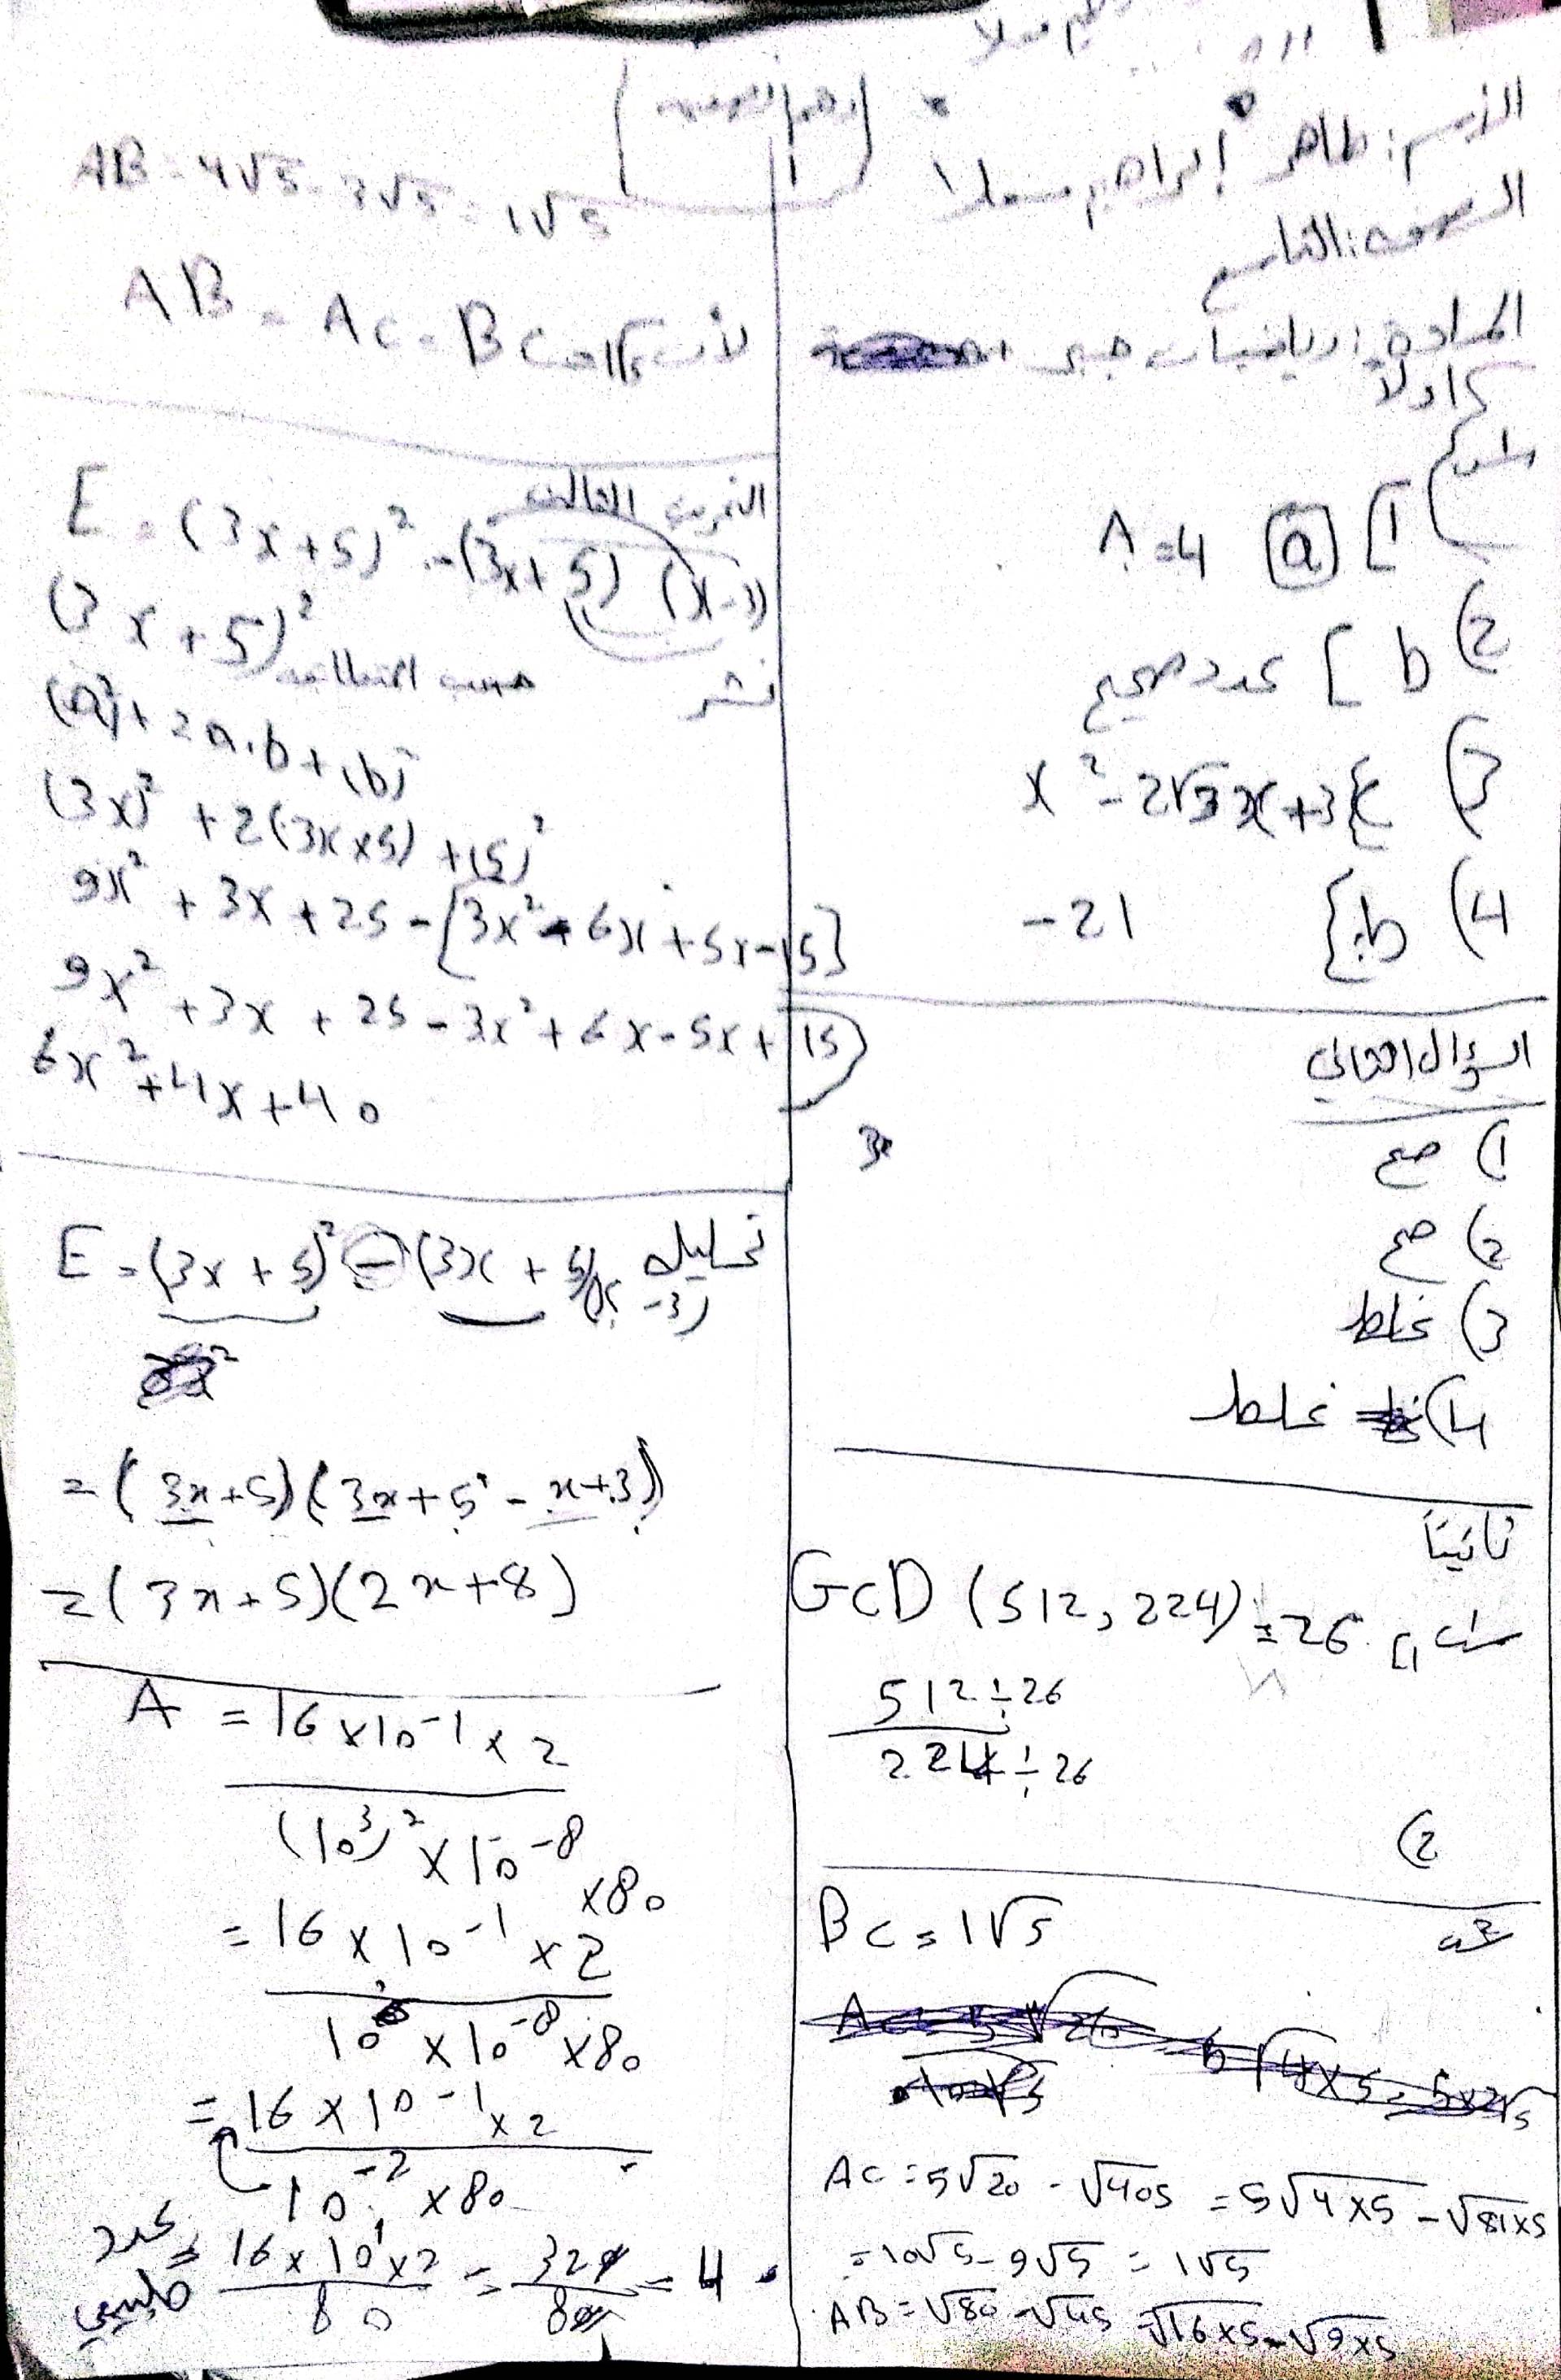 الاسم: طاهر إبراهيم معلا
الصف: التاسع
المادة: رياضيات جبر
اولاً
1] [a] A=4
2) b] عدد صحيح
3) c} x² - 2√3 x + 3
4) b} -21
السؤال الثاني
1) صح
2) صح
3) غلط
4) غلط
ثانياً
GCD (512, 224) = 26
512 ÷ 26
224 ÷ 26
2)
BC = 1√5
AC = 5√20 - √405 = 5√4×5 - √81×5
= 10√5 - 9√5 = 1√5
AB = √80 - √45 = √16×5 - √9×5
AB = 4√5 - 3√5 = 1√5
AB = AC = BC
التمرين الثالث
E = (3x+5)² - (3x+5)(x-3)
نشر
(3x+5)² حسب المطابقة
(a)² + 2a.b + (b)²
(3x)² + 2(3x×5) + (5)²
9x² + 3x + 25 - [3x² - 6x + 5x - 15]
9x² + 3x + 25 - 3x² + 6x - 5x + 15
6x² + 4x + 40
تحليل
E = (3x+5)² - (3x+5)(x-3)
= (3x+5)(3x+5 - x+3)
= (3x+5)(2x+8)
A = 16×10⁻¹×2
(10³)² × 10⁻⁸ ×80
= 16×10⁻¹×2
10⁶ × 10⁻⁸ ×80
= 16×10⁻¹×2
10⁻² ×80
= 16×10¹×2 = 320 = 4
80 80
عدد طبيعي